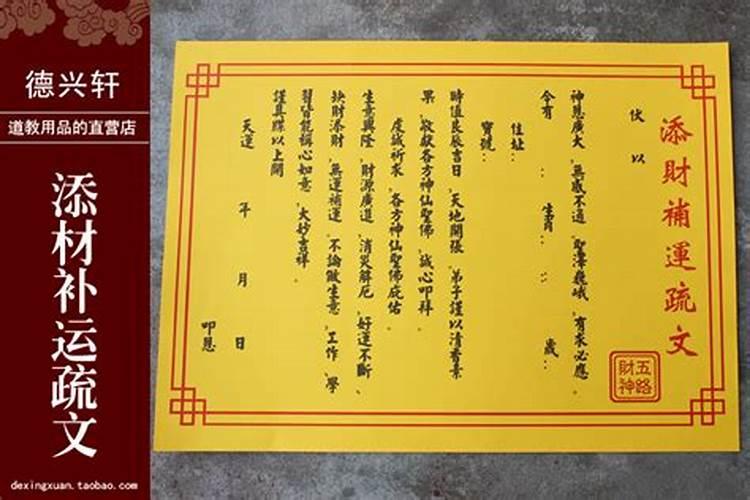 德兴轩
道教用品的直营店
添材补运疏文
dexingxuan.taobao.com
添財補運疏文
五路
財神
伏以
神恩廣大、無感不通、聖澤巍峨、有求必應。
今有 : 生肖 : : 歲 :
住址:
寶號:
時值良辰吉日、天地開張、弟子謹以清香素
果、敬献各方神仙聖佛、誠心叩拜。
虔誠祈求、各方神仙聖佛庇佑。
生意興隆、財源廣進、消災解厄、好運不斷、
缺財添財、無運補運、不論做生意、工作、學
習皆能稱心如意、大妙吉祥。
謹具牒以上聞
天運 年 月 日 叩恩